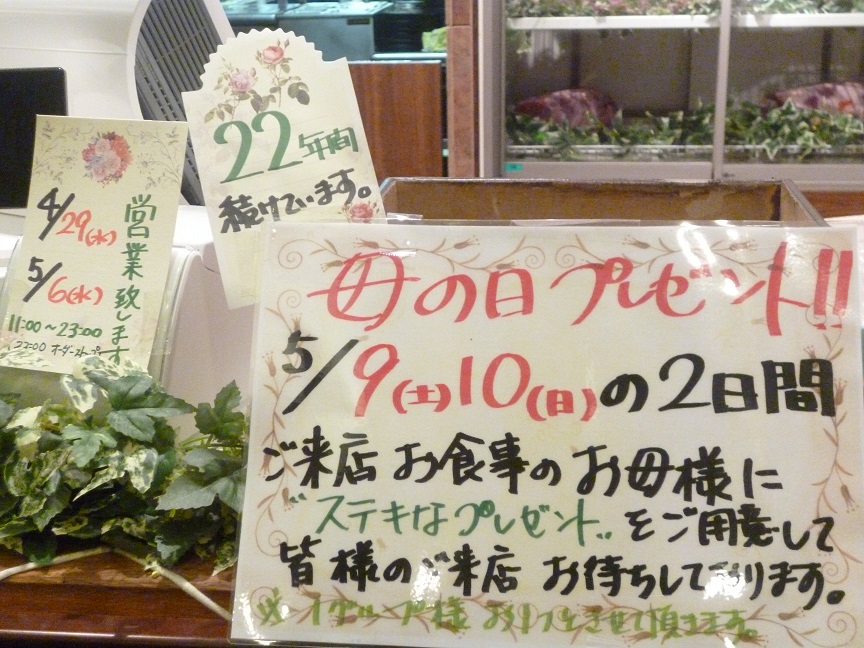 4/29(水)
5/6(水)
営業致します
11:00～23:00
22:00 オーダーストップ
22年間
続けています。
母の日プレゼント!!
5/9(土)10(日)の2日間
ご来店お食事のお母様に
"ステキなプレゼント"をご用意して
皆様のご来店お待ちしております。
※1グループ様お1つとさせて頂きます。